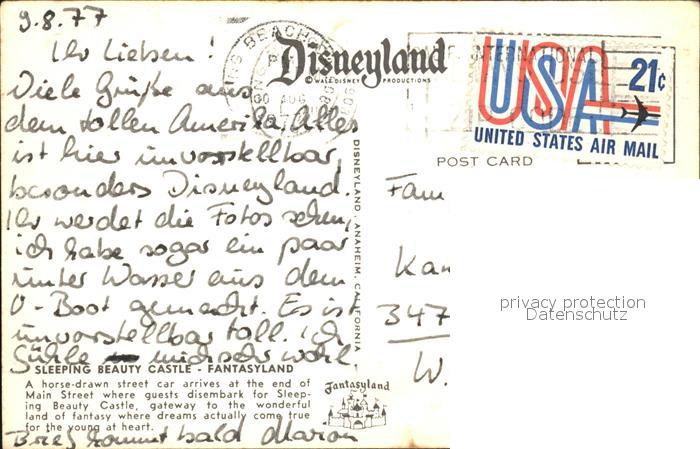 9.8.77
Ihr Lieben!
Viele Grüße aus
dem tollen Amerika, Alles
ist hier unvorstellbar,
besonders Disneyland.
Ihr werdet die Fotos sehen,
ich habe sogar ein paar
unter Wasser aus dem
U-Boot gemacht. Es ist
unvorstellbar toll. Ich
fühle mich sehr wohl.
SLEEPING BEAUTY CASTLE - FANTASYLAND
A horse-drawn street car arrives at the end of
Main Street where guests disembark for Sleep-
ing Beauty Castle, gateway to the wonderful
land of fantasy where dreams actually come true
for the young at heart.
Brief kommt bald Marion
Fantasyland
Disneyland
© WALT DISNEY PRODUCTIONS
DISNEYLAND, ANAHEIM, CALIFORNIA
BEACH
AUG
INTERNATIONAL
USA
21c
UNITED STATES AIR MAIL
POST CARD
Fam
Kan
347
W.
privacy protection
Datenschutz